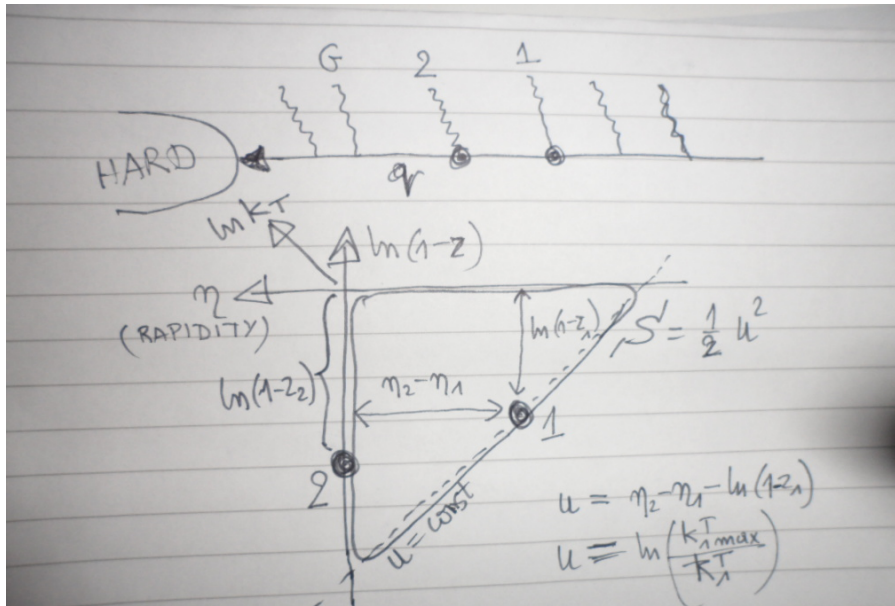 G 2 1
HARD
q
ln KT ln(1-z)
η
(RAPIDITY)
ln(1-z₁)
S = 1/2 u²
ln(1-z₂)
η₂-η₁
1
2
u = const
u = η₂-η₁-ln(1-z₁)
u = ln(K₁ᵀmax/K₁ᵀ)